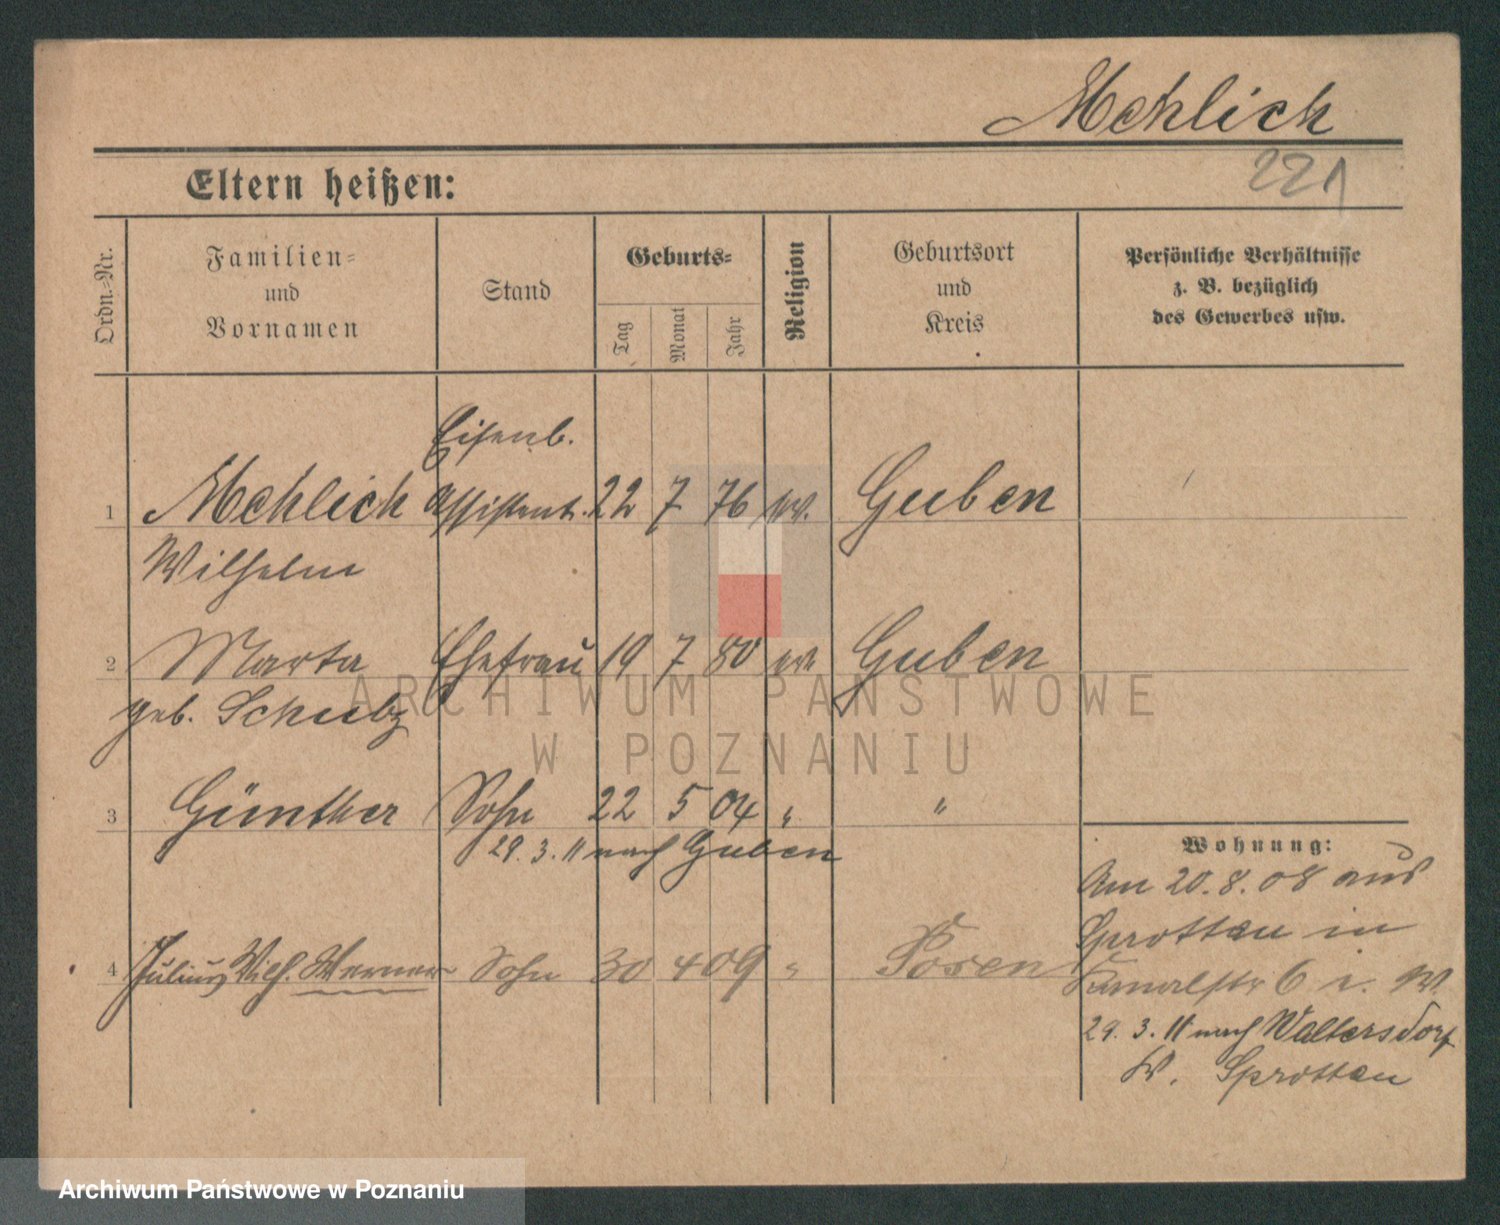 Mehlich
221
Eltern heißen:
Ordn.-Nr.
Familien-
und
Vornamen
Stand
Geburts-
Tag
Monat
Jahr
Religion
Geburtsort
und
Kreis
Persönliche Verhältnisse
z. B. bezüglich
des Gewerbes usw.
Eisenb.
1 Mehlich Assistent. 22 7 76 ev. Guben
Wilhelm
2 Marta Ehefrau 19 7 80 ev. Guben
geb. Schulz
3 Günther Sohn 22 5 04 " "
29. 3. 11 nach Guben
4 Julius Wilh. Werner Sohn 30 4 09 " Posen
Wohnung:
Am 20. 8. 08 aus
Sprottau in
Kanalstr 6 i. W.
29. 3. 11 nach Waltersdorf
Sprottau
ARCHIWUM PAŃSTWOWE
W POZNANIU
Archiwum Państwowe w Poznaniu